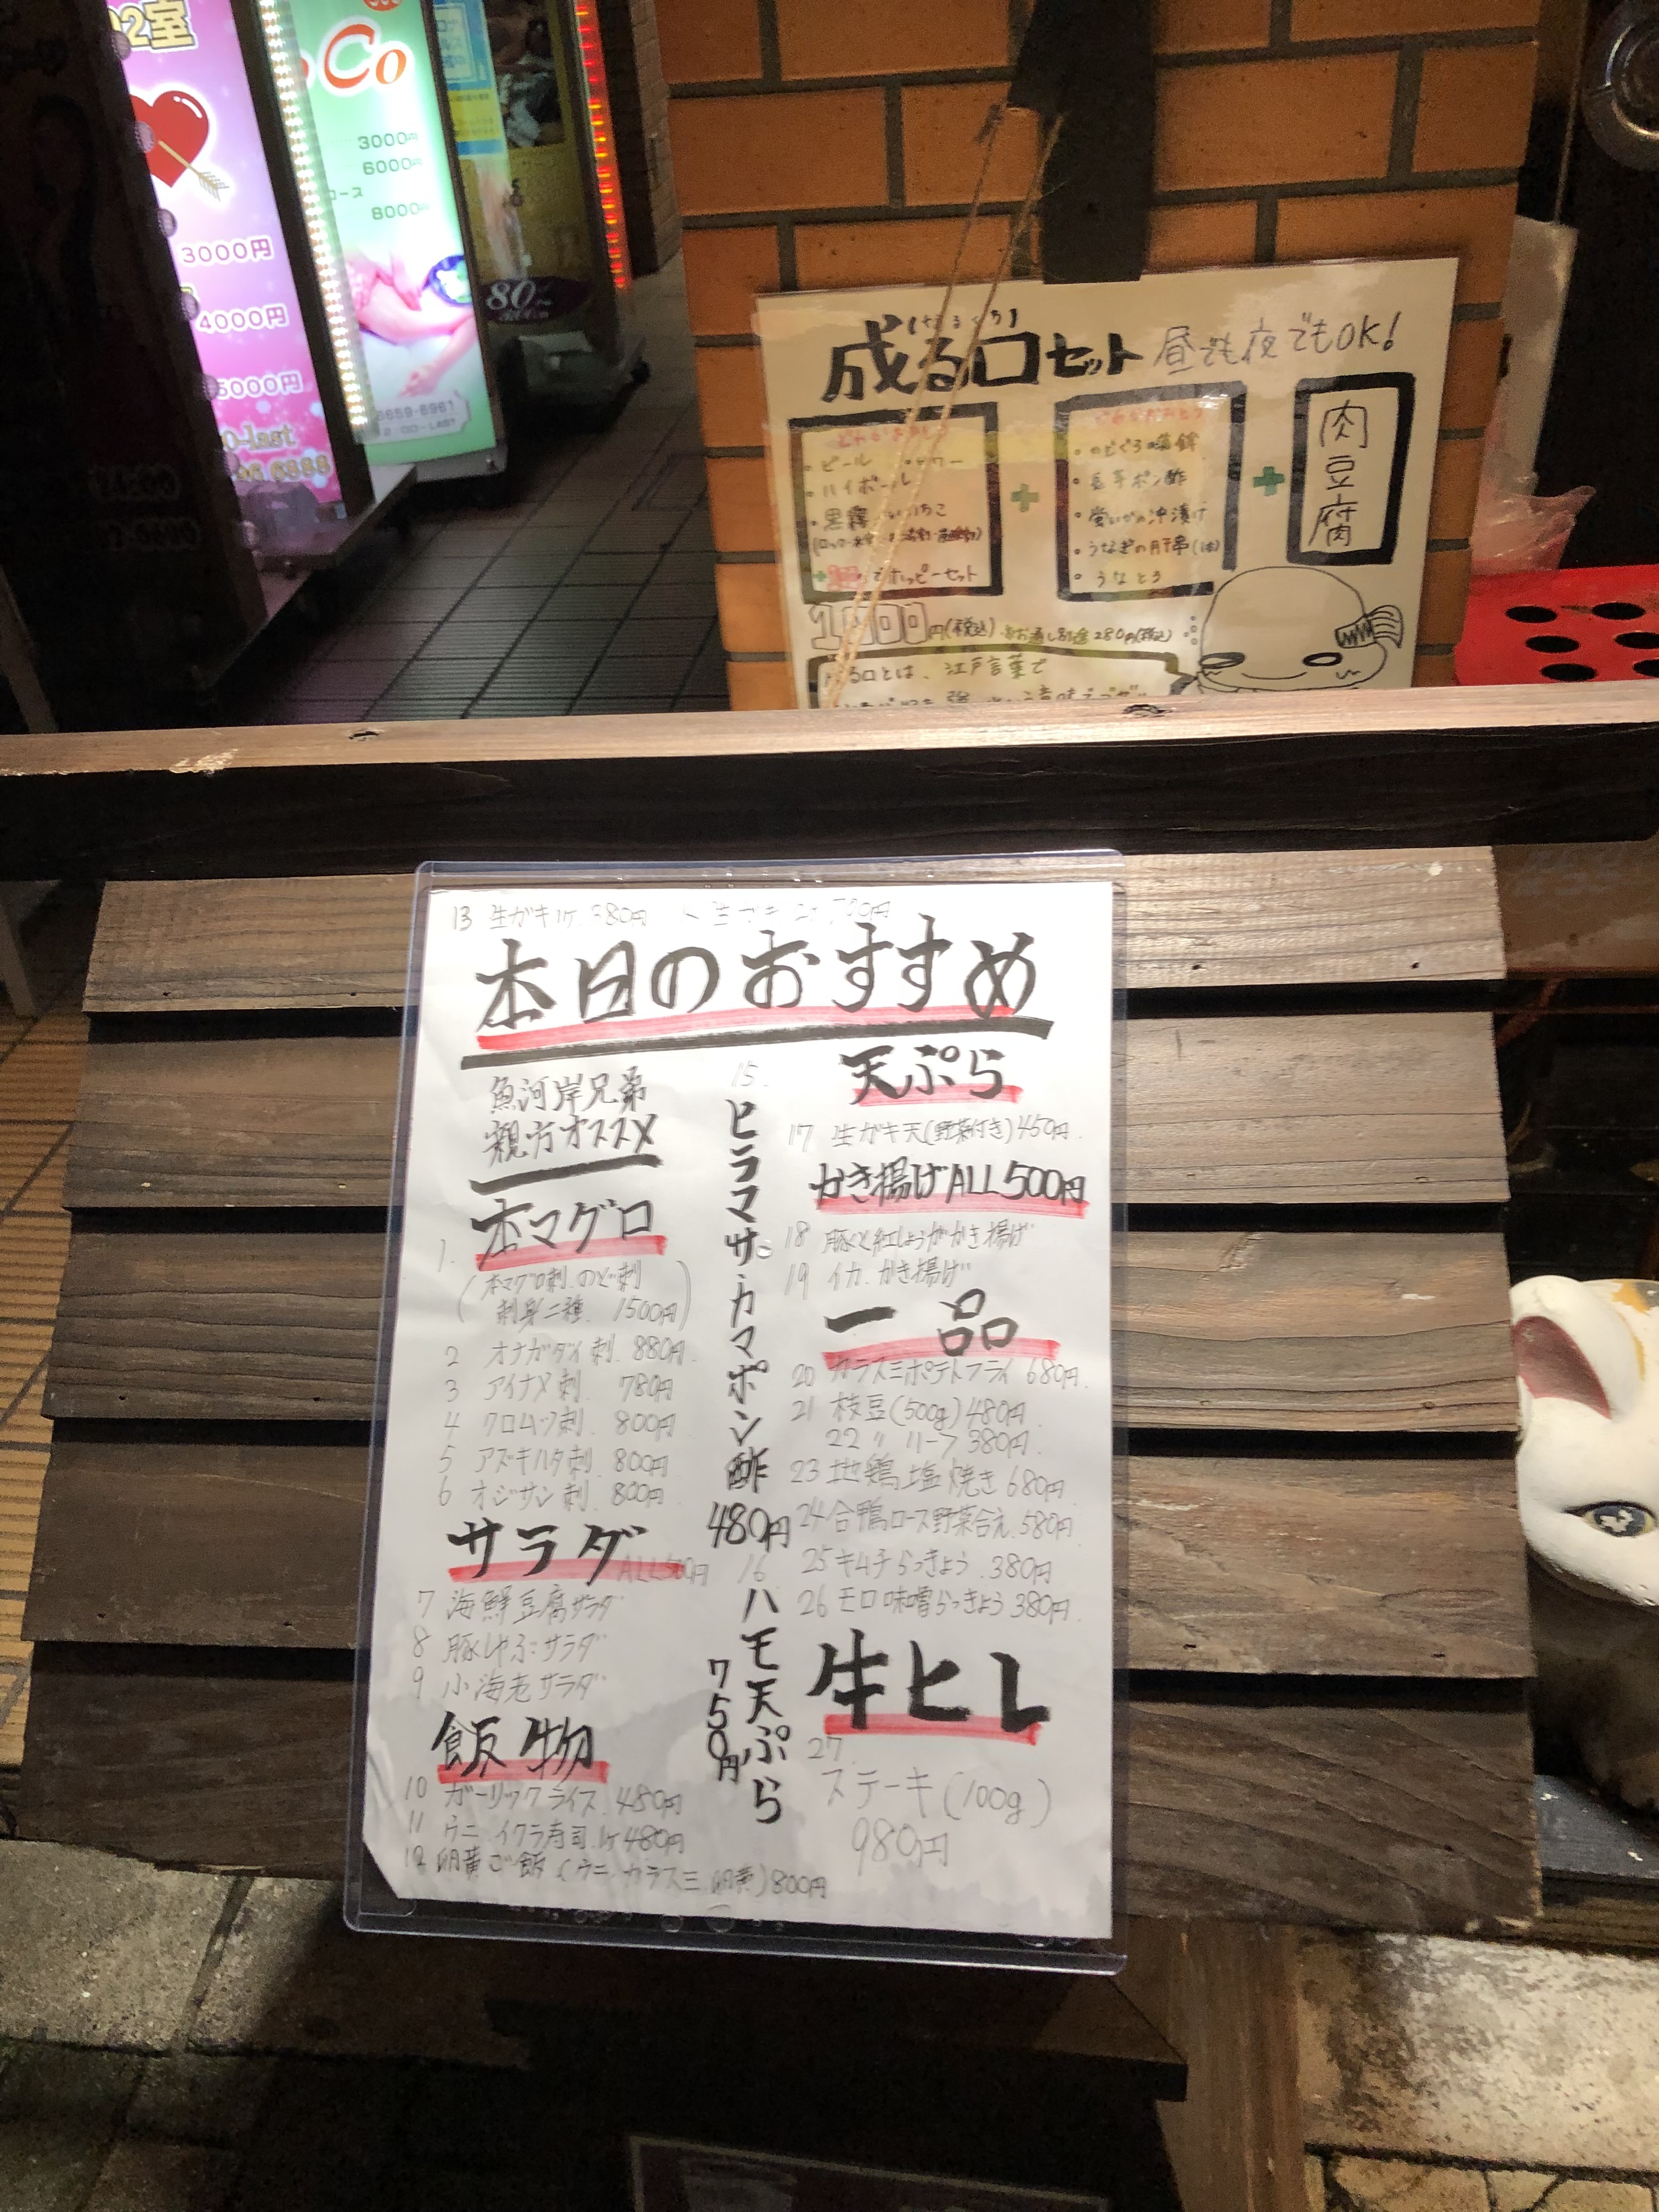 2室
3000円
4000円
5000円
0-last
Co
3000円
6000円
コース
8000円
6659-6961
2:00-LAST
80
成る口セット 昼でも夜でもOK!
(なるくち)
・ビール ・サワー
・ハイボール
・黒霧 いいちこ
でホッピーセット
+
・のどぐろの
・ポン酢
・蛍いかの沖漬け
・うなぎの肝串(1本)
・うなとろ
+
肉豆腐
円(税込) ※お通し別途280円(税込)
成る口とは、江戸言葉で
13 生ガキ1ケ 380円
本日のおすすめ
魚河岸兄弟
親方オススメ
1. 本マグロ
(本マグロ刺.のど刺
刺身二種. 1500円)
2 オナガダイ刺. 880円
3 アイナメ刺. 780円
4 クロムツ刺. 800円
5 アズキハタ刺. 800円
6 オジサン刺. 800円
サラダ ALL500円
7 海鮮豆腐サラダ
8 豚しゃぶサラダ
9 小海老サラダ
飯物
10 ガーリックライス. 480円
11 ウニ イクラ寿司.1ケ480円
12 卵黄ご飯(ウニ カラスミ 卵黄)800円
15.
ヒラマサカマポン酢
480円
16
ハモ天ぷら
750円
天ぷら
17 生ガキ天(野菜付き)450円
かき揚げALL500円
18 豚バラと紅しょうがかき揚げ
19 イカ.かき揚げ
一品
20 カラスミポテトフライ 680円
21 枝豆(500g)480円
22 〃 ハーフ 380円
23 地鶏塩焼き 680円
24 合鴨ロース野菜合え.580円
25 キムチらっきょう.380円
26 モロ味噌らっきょう380円
牛ヒレ
27.
ステーキ(100g)
980円